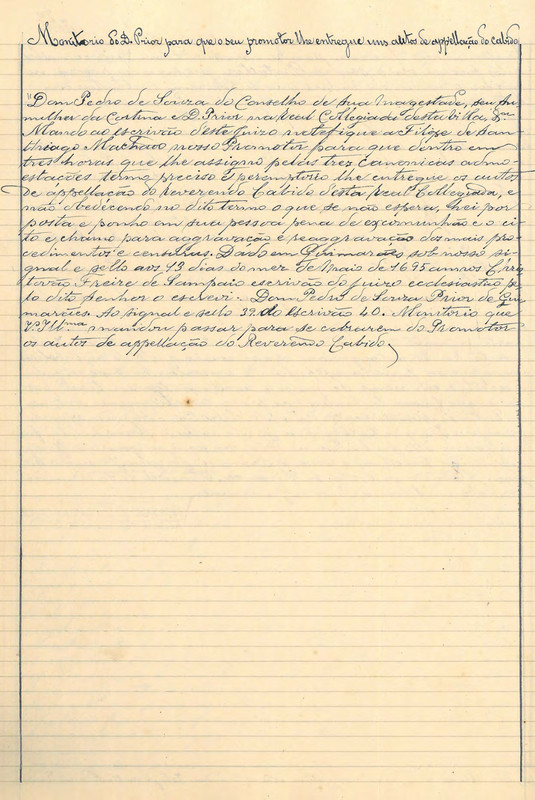 Monitorio do D. Prior para que o seu promotor lhe entregue uns autos de appellação do cabido
"Dom Pedro de Souza do Conselho de Sua Magestade, seu Su
milher da Cortina e D. Prior na Real Collegiada desta Villa, &ra
Mando ao Escrivão deste juizo notefique a Filipe de Sam
thiago Machado nosso Promotor para que dentro em
tres horas que lhe assigno pelas trez canonicas admo-
estações termo preciso e peremptorio lhe entregue os autos
de appellação do Reverendo Cabido desta Real Collegiada, e
não obedicendo no dito termo o que se não espera, hei por
posta e ponho em sua pessoa pena de excomunhão e o ci
to e chamo para aggravação e reaggravação dos mais pro-
cedimentos e censuras. Dado em Guimarães sob nosso si-
gnal e sello aos 13 dias do mez de Maio de 1695 annos Cris
tovão Freire de Sampaio escrivão do juizo ecclesiastico pe
lo dito senhor o escrevi. Dom Pedro de Souza Prior de Gui
marães. Ao signal e sello 32. do Escrivão 40. Monitorio que
mandou passar para se cobrarem do Promotor
os autos de appellação do Reverendo Cabido